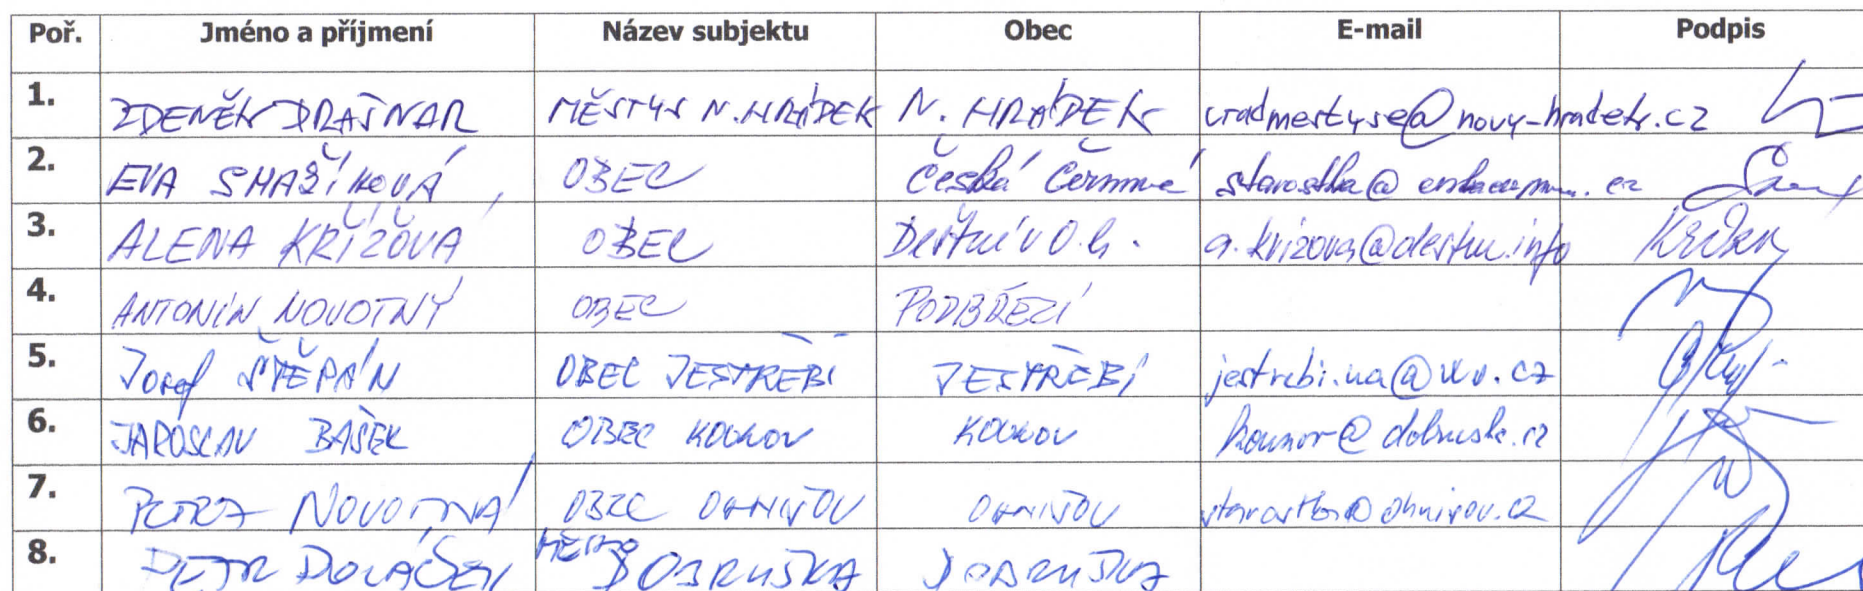 Poř. Jméno a příjmení Název subjektu Obec E-mail Podpis
1. ZDENĚK DRAŠNAR MĚSTYS N. HRÁDEK N. HRÁDEK uradmestyse@novy-hradek.cz
2. EVA SMAŽÍKOVÁ OBEC Česká Čermná starostka@
3. ALENA KŘÍŽOVÁ OBEC Deštné v O.h. a.krizova@destne.info
4. ANTONÍN NOVOTNÝ OBEC PODBŘEZÍ
5. Josef ŠTĚPÁN OBEC JESTŘEBÍ JESTŘEBÍ jestrebi.na@wo.cz
6. JAROSLAV BAŠEK OBEC KOUNOV KOUNOV kounov@dobruska.cz
7. PETRA NOVOTNÁ OBEC OHNIŠOV OHNIŠOV starostka@ohnisov.cz
8. PETR MĚSTO DOBRUŠKA DOBRUŠKA